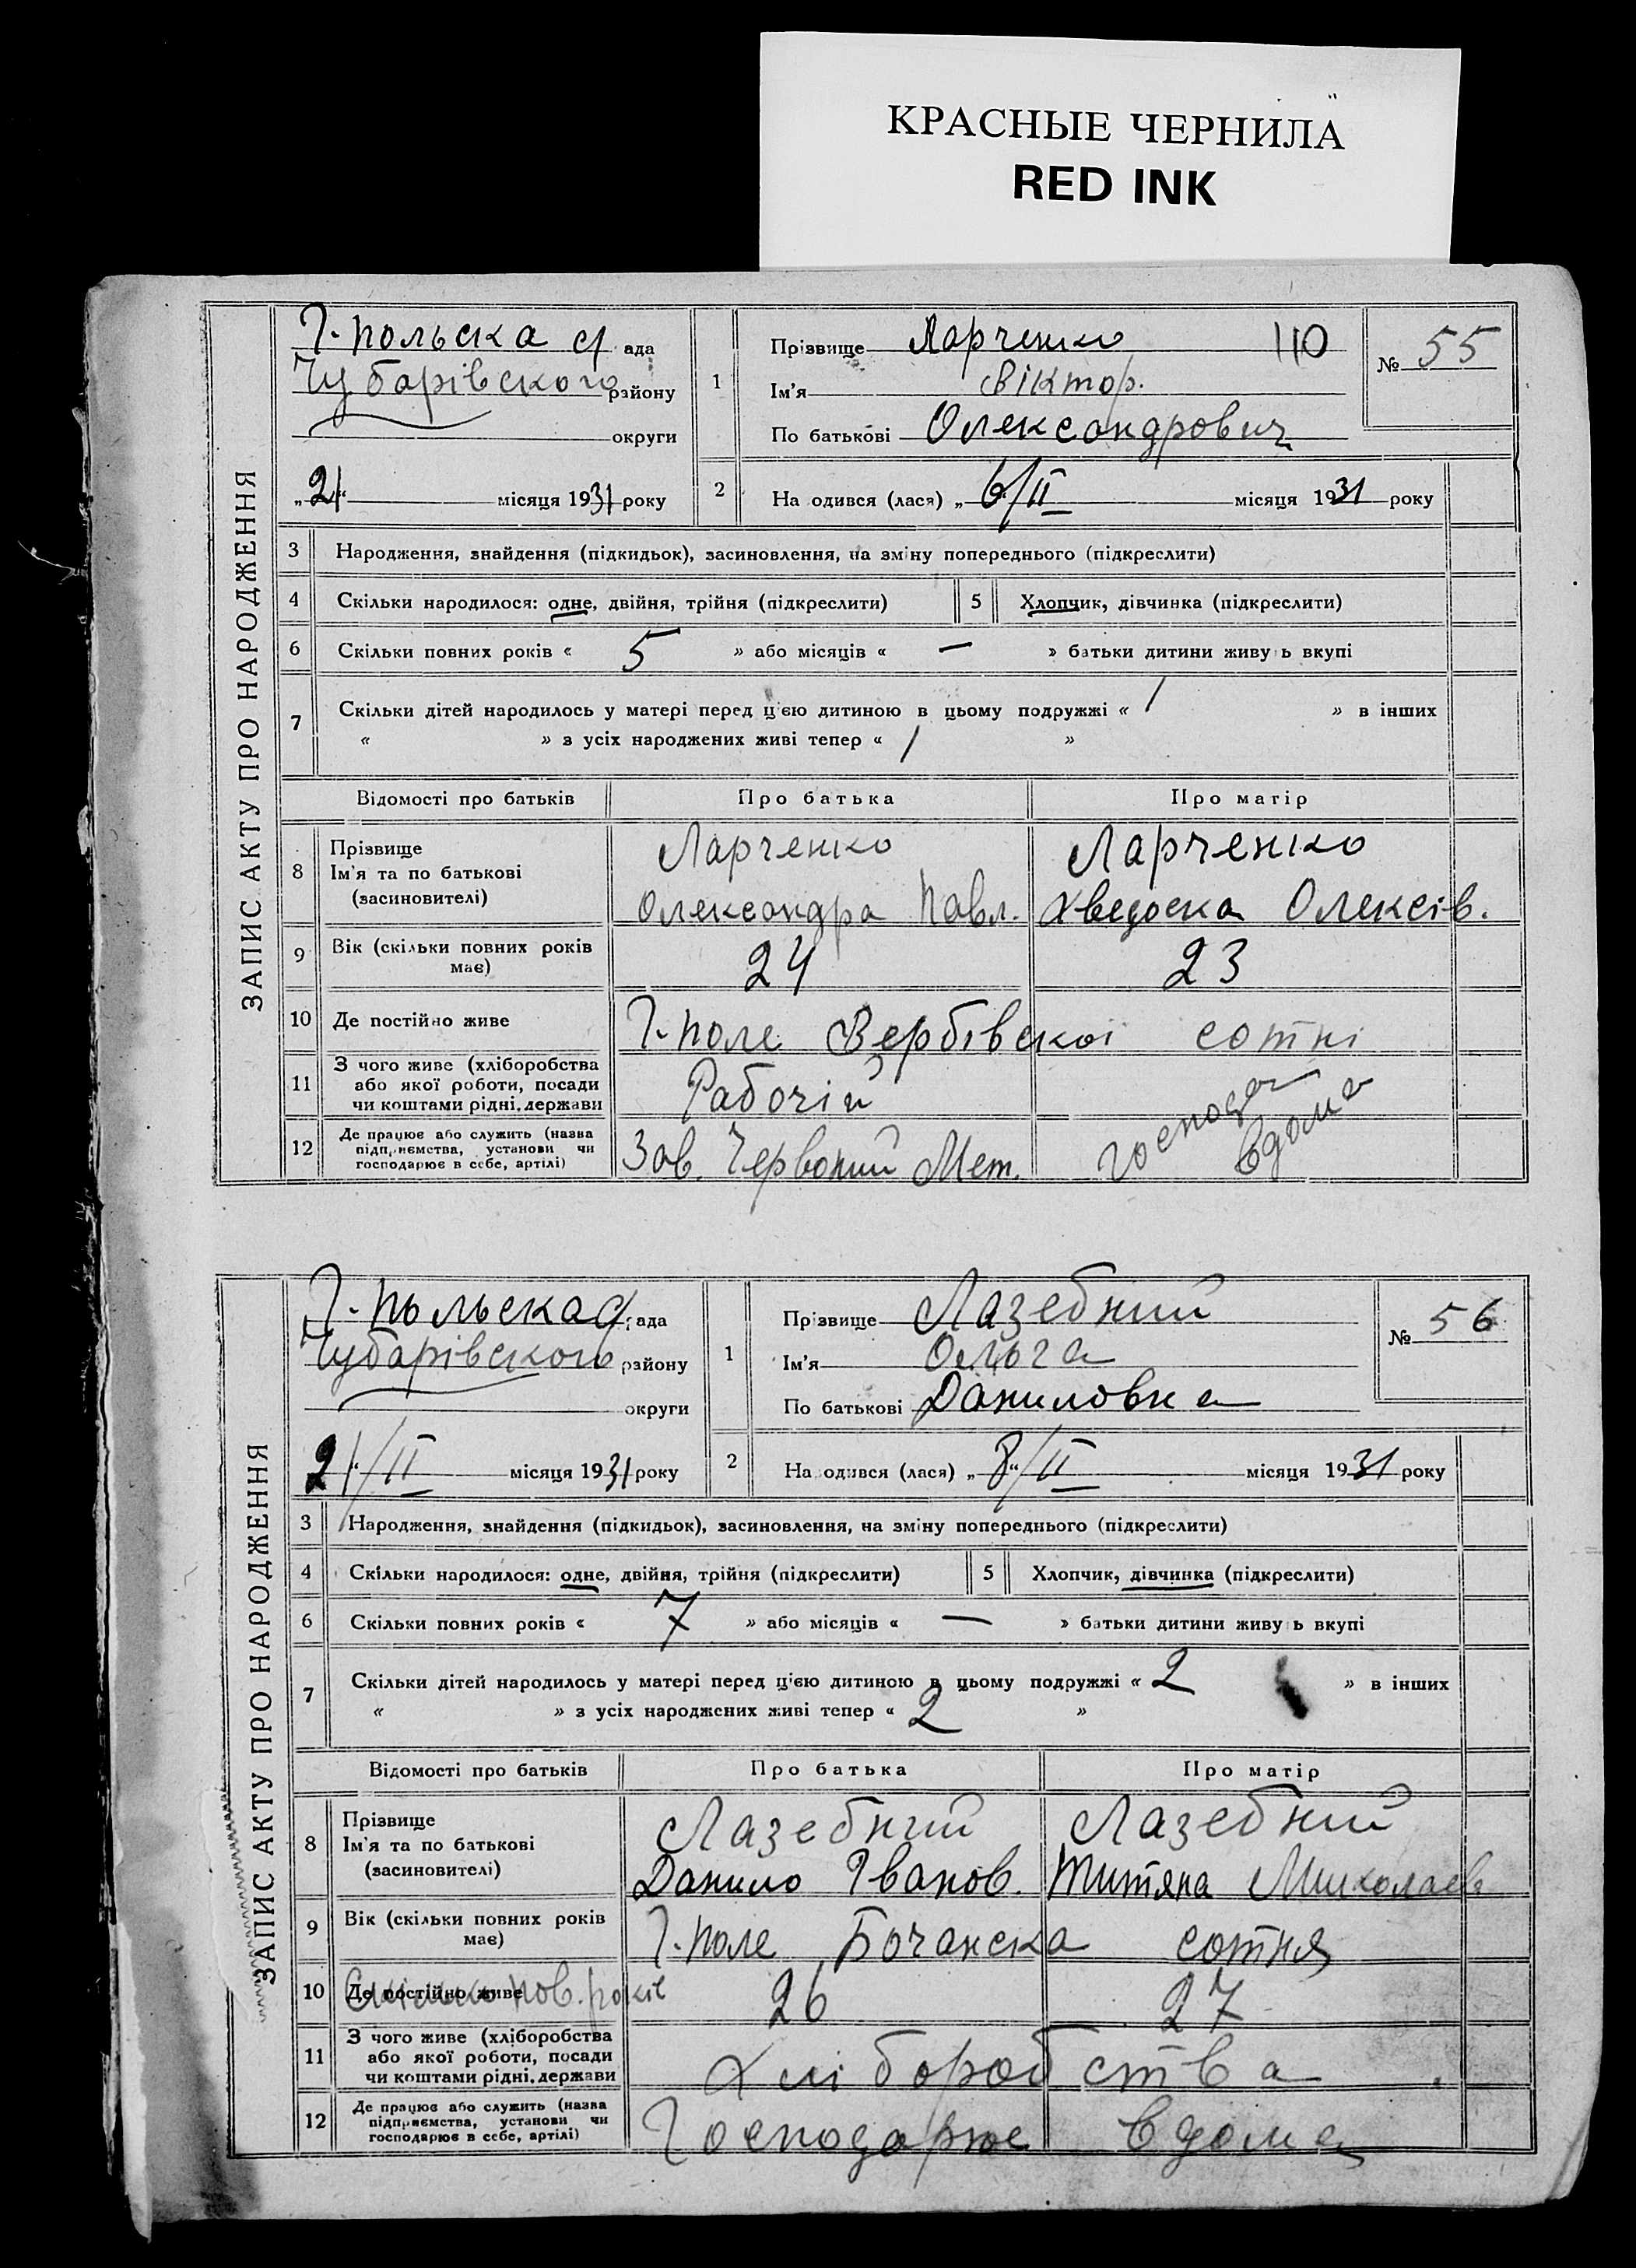 КРАСНЫЕ ЧЕРНИЛА
RED INK
ЗАПИС АКТУ ПРО НАРОДЖЕННЯ
Г-польска с/ ада
Чубарівского району
округи
„21“ місяця 1931 року
1
Прізвище Ларченко 110
Ім'я Віктор.
По батькові Олександрович
№ 55
2
На одився (лася) „6/II місяця 1931 року
3 Народження, знайдення (підкидьок), засиновлення, на зміну попереднього (підкреслити)
4 Скільки народилося: одне, двійня, трійня (підкреслити) 5 Хлопчик, дівчинка (підкреслити)
6 Скільки повних років « 5 » або місяців « — » батьки дитини живу ь вкупі
7 Скільки дітей народилось у матері перед цією дитиною в цьому подружжі « 1 » в інших
« » з усіх народжених живі тепер « 1 »
Відомості про батьків Про батька Про матір
8 Прізвище
Ім'я та по батькові
(засиновителі)
Ларченко Ларченко
Олександра Павл. Хведоска Олексів.
9 Вік (скільки повних років має) 24 23
10 Де постійно живе Г-поле Вербівскої сотні
11 З чого живе (хліборобства
або якої роботи, посади
чи коштами рідні, держави
Рабочій
12 Де працює або служить (назва
підприємства, установи чи
господарює в себе, артілі)
Зав. Червоний Мет.
господар
вдома
ЗАПИС АКТУ ПРО НАРОДЖЕННЯ
Г-польска с/ ада
Чубарівского району
округи
21/II місяця 1931 року
1
Прізвище Лазебний
Ім'я Ольга
По батькові Даниловна
№ 56
2
На одився (лася) „8“/II місяця 1931 року
3 Народження, знайдення (підкидьок), засиновлення, на зміну попереднього (підкреслити)
4 Скільки народилося: одне, двійня, трійня (підкреслити) 5 Хлопчик, дівчинка (підкреслити)
6 Скільки повних років « 7 » або місяців « — » батьки дитини живу ь вкупі
7 Скільки дітей народилось у матері перед цією дитиною в цьому подружжі « 2 » в інших
« » з усіх народжених живі тепер « 2 »
Відомості про батьків Про батька Про матір
8 Прізвище
Ім'я та по батькові
(засиновителі)
Лазебний Лазебний
Данило Іванов. Титяна Миколаєв
9 Вік (скільки повних років має) Г-поле Бочанска сотня
10 Де постійно живе Скілько пов. років 26 27
11 З чого живе (хліборобства
або якої роботи, посади
чи коштами рідні, держави
Хліборобства
12 Де працює або служить (назва
підприємства, установи чи
господарює в себе, артілі)
Господарює вдома